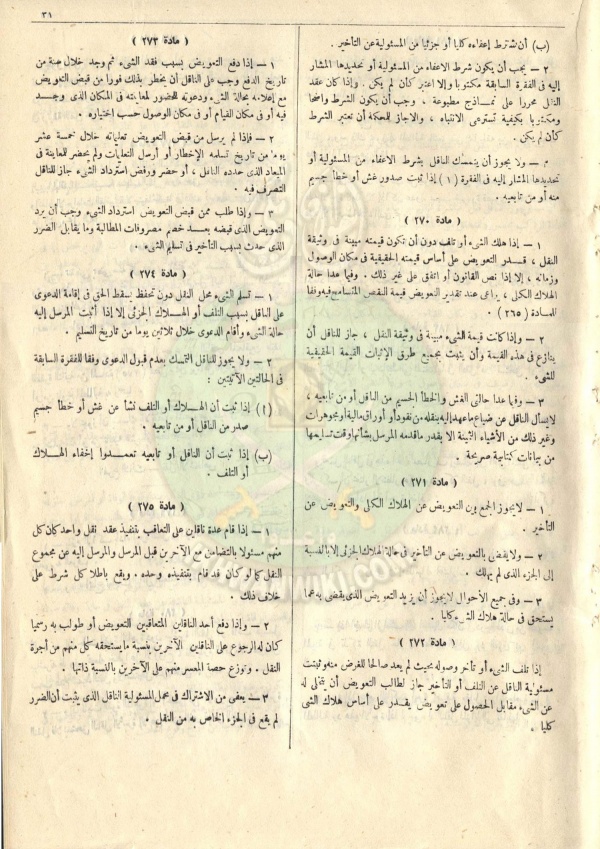 ٣١
(ب) أن يشترط إعفاءه كليا أو جزئيا من المسئولية عن التأخير .
٢ — يجب أن يكون شرط الاعفاء من المسئولية أو تحديدها المشار
إليه فى الفقرة السابقة مكتوبا وإلا اعتبر كأن لم يكن . وإذا كان عقد
النقل محررا على نماذج مطبوعة ، وجب أن يكون الشرط واضحا
ومكتوبا بكيفية تسترعى الانتباه ، والا جاز للمحكمة أن تعتبر الشرط
كأن لم يكن .
م — ولا يجوز أن يتمسك الناقل بشرط الاعفاء من المسئولية أو
تحديدها المشار إليه فى الفقرة (١) إذا ثبت صدور غش أو خطأ جسيم
منه أو من تابعيه .
( مادة ٢٧٠ )
١ — إذا هلك الشىء أو تلف دون أن تكون قيمته مبينة فى وثيقة
النقل ، قدر التعويض على أساس قيمته الحقيقية فى مكان الوصول
وزمانه ، إلا إذا نص القانون أو اتفق على غير ذلك . وفيما عدا حالة
الهلاك الكلى ، يراعى عند تقدير التعويض قيمة النقص المتسامح فيه وفقا
للمادة (٢٦٥)
٢ — وإذا كانت قيمة الشىء مبينة فى وثيقة النقل ، جاز للناقل أن
ينازع فى هذه القيمة وأن يثبت بجميع طرق الإثبات القيمة الحقيقية
للشىء .
٣ — وفيما عدا حالتى الغش والخطأ الجسيم من الناقل أو من تابعيه ،
لا يسأل الناقل عن ضياع ما عهد إليه بنقله من نقود أو أوراق مالية أو مجوهرات
وغير ذلك من الأشياء الثمينة الا بقدر ما قدمه المرسل بشأنها وقت تسليمها
من بيانات كتابية صريحة .
( مادة ٢٧١ )
١ — لا يجوز الجمع بين التعويض عن الهلاك الكلى والتعويض عن
التأخير .
٢ — ولا يقضى بالتعويض عن التأخير فى حالة الهلاك الجزئى إلا بالنسبة
إلى الجزء الذى لم يهلك .
٣ — وفى جميع الأحوال لا يجوز أن يزيد التعويض الذى يقضى به عما
يستحق فى حالة هلاك الشىء كليا .
( مادة ٢٧٢ )
إذا تلف الشىء أو تأخر وصوله بحيث لم يعد صالحا للغرض منه وثبتت
مسئولية الناقل عن التلف أو التأخير جاز لطالب التعويض أن يتخلى له
عن الشىء مقابل الحصول على تعويض يقدر على أساس هلاك الشىء
كليا .
( مادة ٢٧٣ )
١ — إذا دفع التعويض بسبب فقد الشىء ثم وجد خلال سنة من
تاريخ الدفع وجب على الناقل أن يخطر بذلك فورا من قبض التعويض
مع إعلامه بحالة الشىء ودعوته للحضور لمعاينته فى المكان الذى وجد
فيه أو فى مكان القيام أو فى مكان الوصول حسب اختياره .
٢ — فإذا لم يرسل من قبض التعويض تعلياته خلال خمسة عشر
يوما من تاريخ تسلمه الإخطار أو أرسل التعليمات ولم يحضر للمعاينة فى
الميعاد الذى حدده الناقل ، أو حضر ورفض استرداد الشىء جاز للناقل
التصرف فيه .
٣ — وإذا طلب ممن قبض التعويض استرداد الشىء وجب أن يرد
التعويض الذى قبضه بعد خصم مصروفات المطالبة وما يقابل الضرر
الذى حدث بسبب التأخير فى تسليم الشىء .
( مادة ٢٧٤ )
١ — تسلم الشىء محل النقل دون تحفظ يسقط الحق فى إقامة الدعوى
على الناقل بسبب التلف أو الهلاك الجزئى إلا إذا أثبت المرسل إليه
حالة الشىء وأقام الدعوى خلال ثلاثين يوما من تاريخ التسليم .
٢ — ولا يجوز للناقل التمسك بعدم قبول الدعوى وفقا للفقرة السابقة
فى الحالتين الآتيتين :
(أ) إذا ثبت أن الهلاك أو التلف نشأ عن غش أو خطأ جسيم
صدر من الناقل أو من تابعيه .
(ب) إذا ثبت أن الناقل أو تابعيه تعمدوا إخفاء الهلاك
أو التلف .
( مادة ٢٧٥ )
١ — إذا قام عدة ناقلين على التعاقب بتنفيذ عقد نقل واحد كان كل
منهم مسئولا بالتضامن مع الآخرين قبل المرسل والمرسل إليه عن مجموع
النقل كما لو كان قد قام بتنفيذه وحده . ويقع باطلا كل شرط على
خلاف ذلك .
٢ — وإذا دفع أحد الناقلين المتعاقبين التعويض أو طولب به رسميا
كان له الرجوع على الناقلين الآخرين بنسبة ما يستحقه كل منهم من أجرة
النقل . وتوزع حصة المعسر منهم على الآخرين بالنسبة ذاتها .
٣ — يعفى من الاشتراك فى تحمل المسئولية الناقل الذى يثبت أن الضرر
لم يقع فى الجزء الخاص به من النقل .